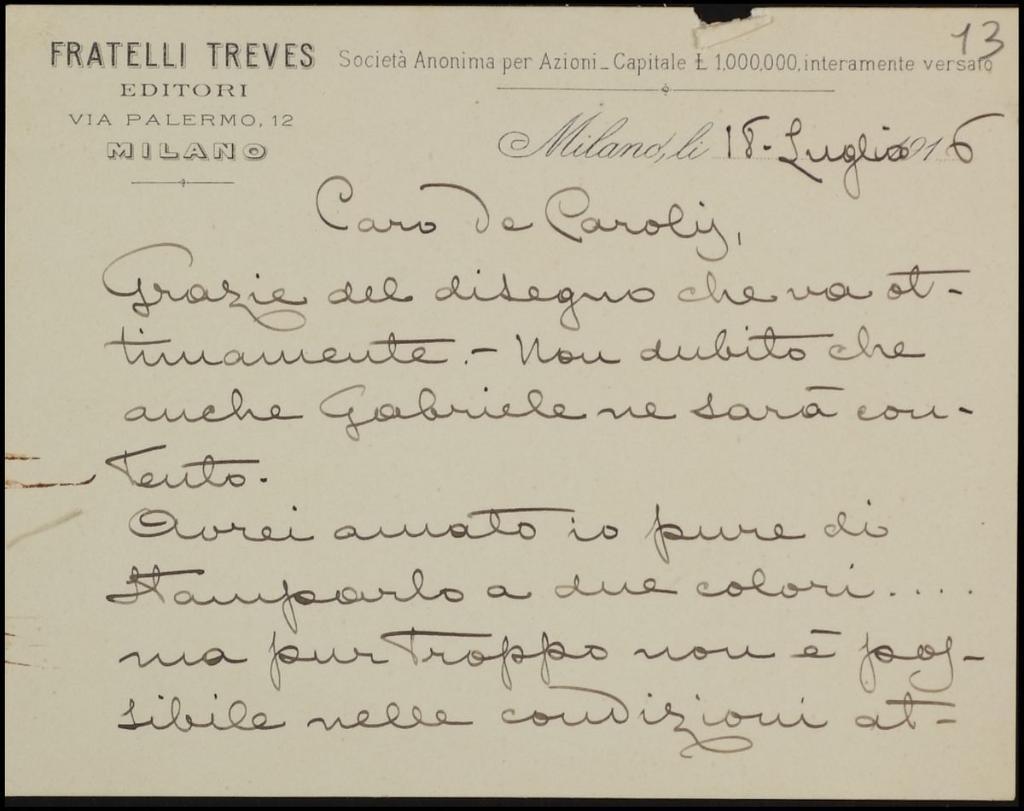 13
FRATELLI TREVES Società Anonima per Azioni _ Capitale Ł 1,000,000, interamente versato
EDITORI
VIA PALERMO, 12
MILANO
Milano, li 18. Luglio 1916
Caro De Carolis,
Grazie del disegno che va ot-
timamente. - Non dubito che
anche Gabriele ne sarà con-
tento.
Avrei amato io pure di
stamparlo a due colori....
ma pur troppo non è pos-
sibile nelle condizioni at-